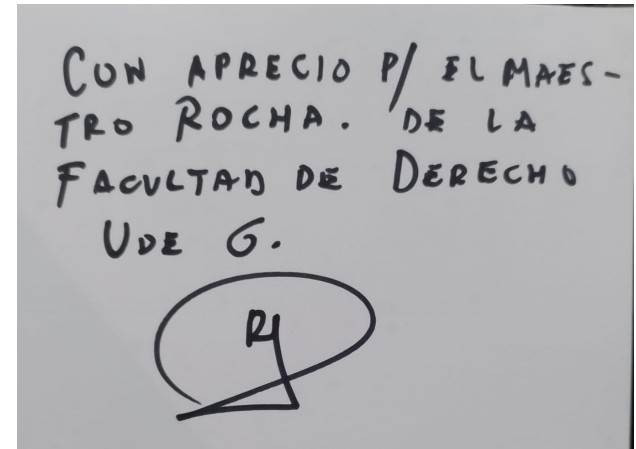 CON APRECIO P/ EL MAES-
TRO ROCHA. DE LA
FACULTAD DE DERECHO
U DE G.